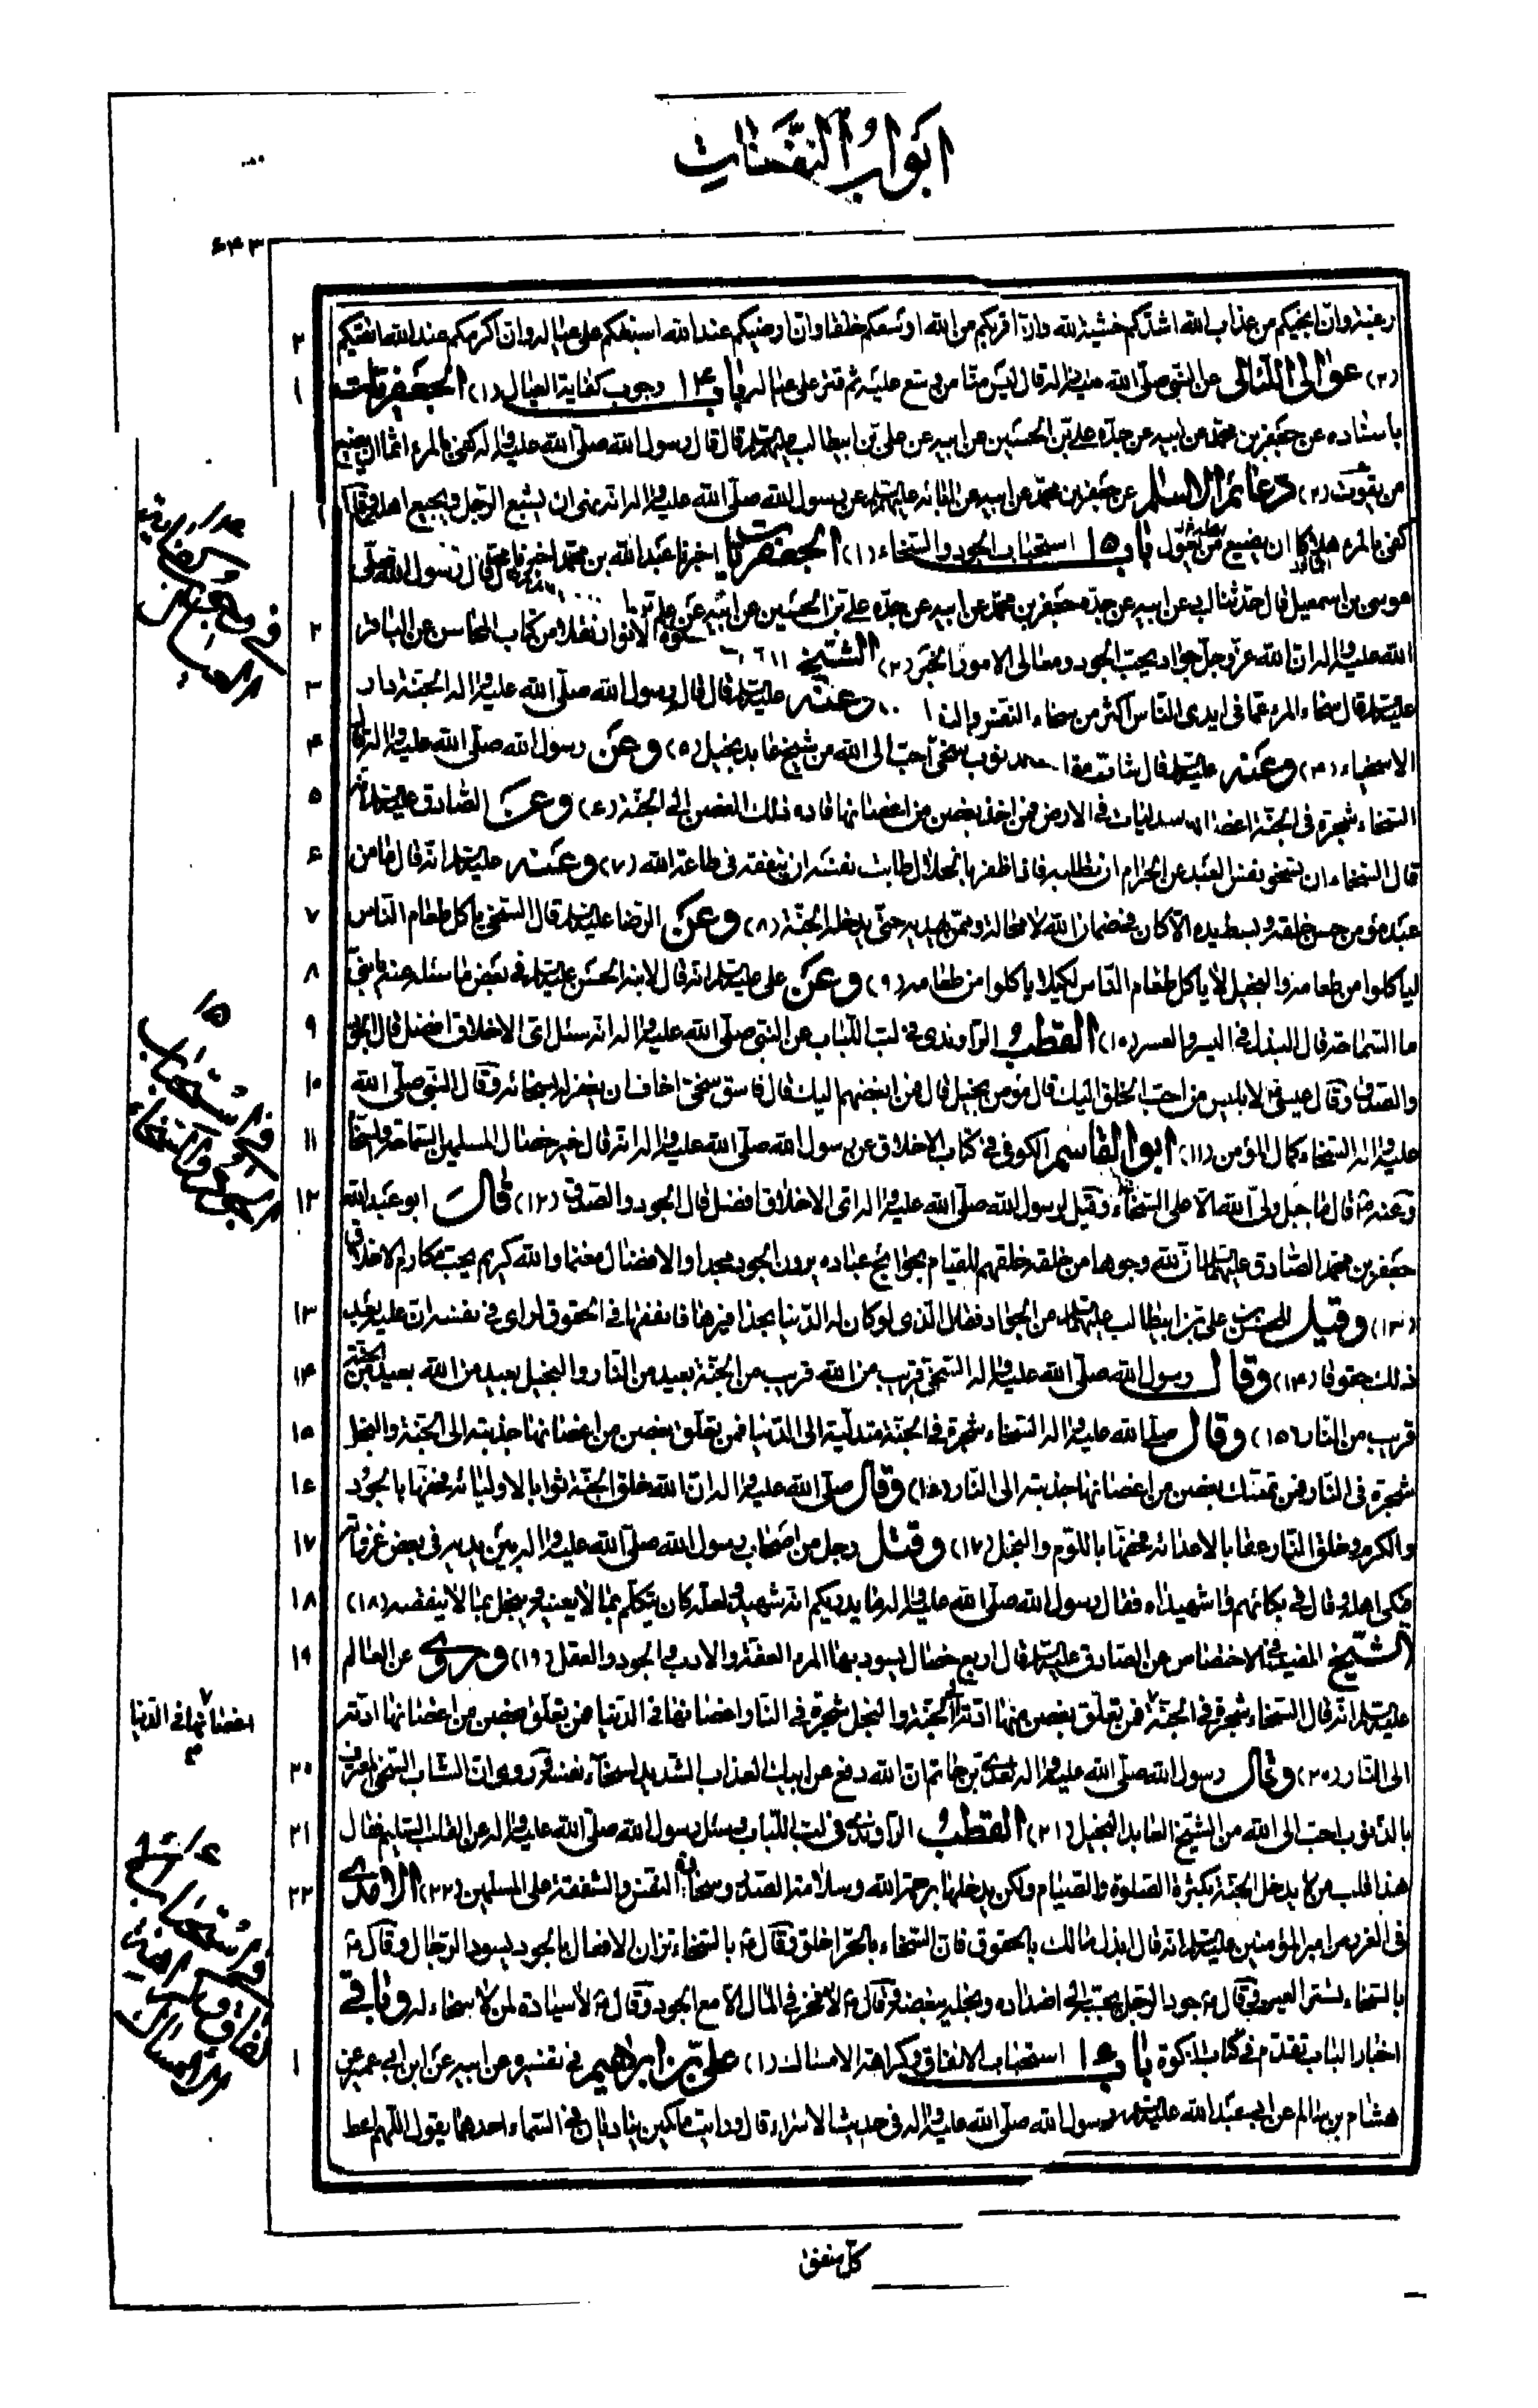 ابواب النفقات
۶۴۳
رغبة وان انجيكم من عذاب الله اشدكم خشية لله وان اقربكم من الله اوسعكم خلقا وان ارضيكم عند الله اسبغكم على عياله وان اكرمكم عند الله اتقيكم
(۳) عوالى اللئالى عن النبى صلى الله عليه واله قال ليس منا من وسع عليه ثم قتر على عياله باب ۱۴ وجوب كفاية العيال (۱) الجعفريات
باسناده عن جعفر بن محمد عن ابيه عن جده على بن الحسين عن ابيه عن على بن ابيطالب عليهم السلام قال قال رسول الله صلى الله عليه واله كفى بالمرء اثما ان يضيع
من يقوت (۲) دعائم الاسلام عن جعفر بن محمد عن ابيه عن ابائه عليهم السلام عن رسول الله صلى الله عليه واله انه نهى ان يشبع الرجل ويجيع اهله وقال
كفى بالمرء هلاكا ان يضيع من يعول باب ۱۵ استحباب الجود والسخاء (۱) الجعفريات اخبرنا عبد الله بن محمد اخبرنا محمد
موسى بن اسمعيل قال حدثنا ابى عن ابيه عن جده جعفر بن محمد عن ابيه عن جده على بن الحسين عن ابيه عن على قال قال رسول الله صلى
الله عليه واله ان الله عز وجل جواد يحب الجود ومعالى الامور الخبر (۲) الشيخ الانوار نقلا من كتاب المحاسن عن الباقر
عليه السلام قال سخاء المرء عما فى ايدى الناس اكثر من سخاء النفس والبذل وعنه عليه السلام قال قال رسول الله صلى الله عليه واله الجنة دار
الاسخياء (۴) وعنه عليه السلام قال شاب سخى احب الى الله من شيخ عابد بخيل (۵) وعن رسول الله صلى الله عليه واله قال
السخاء شجرة فى الجنة متدليات فى الارض فمن اخذ بغصن من اغصانها قاده ذلك الغصن الى الجنة (۶) وعن الصادق عليه السلام
قال السخاء ان تسخو نفس العبد عن الحرام ان تطلبه فاذا ظفر بالحلال طابت نفسه ان ينفقه فى طاعة الله (۷) وعنه عليه السلام انه قال ما من
عبد مؤمن حسن خلقه وبسط يده الا كان فى ضمان الله لا محالة وممن يهديه حتى يدخله الجنة (۸) وعن الرضا عليه السلام قال السخى ياكل طعام الناس
لياكلوا من طعامه والبخيل لا ياكل طعام الناس لكيلا ياكلوا من طعامه (۹) وعن على عليه السلام انه قال لابنه الحسن عليه السلام فى بعض ما سئله عنه يا بنى
ما السماحة قال البذل فى اليسر والعسر (۱۰) القطب الراوندى فى لب اللباب عن النبى صلى الله عليه واله انه سئل اى الاخلاق افضل قال الجود
والصدق وقال عيسى لابليس من احب الخلق اليك قال مؤمن بخيل قال فمن ابغضهم اليك قال فاسق سخى اخاف ان يغفر له بسخائه وقال النبى صلى الله
عليه واله السخاء كمال المؤمن (۱۱) ابوالقاسم الكوفى فى كتاب الاخلاق عن رسول الله صلى الله عليه واله انه قال خير خصال المسلمين السماحة والسخاء
وعنه قال ما جبل ولى الله الا على السخاء وقيل لرسول الله صلى الله عليه واله اى الاخلاق افضل قال الجود والصدق (۱۲) قال ابو عبد الله
جعفر بن محمد الصادق عليهما السلام ان لله وجوها من خلقه خلقهم للقيام بحوائج عباده يرون الجود مجدا والافضال مغنما والله كريم يحب مكارم الاخلاق
(۱۳) وقيل للحسن بن على بن ابيطالب عليهما السلام من الجواد فقال الذى لو كان له الدنيا بحذافيرها فانفقها فى الحقوق لراى فى نفسه ان عليه بعد
ذلك حقوقا (۱۴) وقال رسول الله صلى الله عليه واله السخى قريب من الله قريب من الجنة بعيد من النار والبخيل بعيد من الله بعيد من الجنة
قريب من النار (۱۵) وقال صلى الله عليه واله السخاء شجرة فى الجنة متدلية الى الدنيا فمن تعلق بغصن من اغصانها جذبته الى الجنة والبخل
شجرة فى النار فمن تمسك بغصن من اغصانها جذبته الى النار (۱۶) وقال صلى الله عليه واله ان الله خلق الجنة ثوابا لاوليائه فحفها بالجود
والكرم وخلق النار عقابا لاعدائه فحفها باللوم والبخل (۱۷) وقتل رجل من اصحاب رسول الله صلى الله عليه واله بين يديه فى بعض غزواته
فبكى اهله وقال فى بكائهم واشهيداه فقال رسول الله صلى الله عليه واله ما يدريكم انه شهيد ولعله كان يتكلم بما لا يعنيه ويبخل بما لا ينقصه (۱۸)
الشيخ المفيد فى الاختصاص عن الصادق عليه السلام قال اربع خصال يسود بها المرء العفة والادب والجود والعقل (۱۹) وروى عن العالم
عليه السلام انه قال السخاء شجرة فى الجنة فمن تعلق بغصن منها ادته الى الجنة والبخل شجرة فى النار اغصانها فى الدنيا فمن تعلق بغصن من اغصانها ادته
الى النار (۲۰) وقال رسول الله صلى الله عليه واله لعدى بن حاتم ان الله دفع عن ابيك العذاب الشديد لسخاء نفسه وروى ان الشاب السخى المقترف
بالذنوب احب الى الله من الشيخ العابد البخيل (۲۱) القطب الراوندى فى لب اللباب وسئل رسول الله صلى الله عليه واله عن القلب السليم فقال
هذا قلب من لا يدخل الجنة بكثرة الصلوة والصيام ولكن يدخلها برحمة الله وسلامة الصدر وسخاوة النفس والشفقة على المسلمين (۲۲) الامدى
فى الغرر عن امير المؤمنين عليه السلام انه قال ابذل مالك بالحقوق فان السخاء بالحر اخلق وقال ع بالسخاء تزان الافعال بالجود يسود الرجال وقال ع
بالسخاء تستر العيوب وقال ع جود الرجل يحببه الى اضداده وبخله يبغضه وقال ع لا فخر فى المال الا مع الجود وقال ع لا سيادة لمن لا سخاء له وياتى
اخبار الباب تقدم فى كتاب الزكوة باب ۱۶ استحباب الانفاق وكراهة الامساك (۱) على بن ابراهيم فى تفسيره عن ابيه عن ابن ابى عمير عن
هشام بن سالم عن ابى عبد الله عليه السلام رسول الله صلى الله عليه واله فى حديث الاسراء قال ورايت ملكين يناديان فى السماء احدهما يقول اللهم اعط
كل منفق
۱۴
فى وجوب كفاية العيال
۱۵
فى استحباب الجود والسخاء
اغصانها فى الدنيا
۱۶
فى استحباب الانفاق وكراهة الامساك